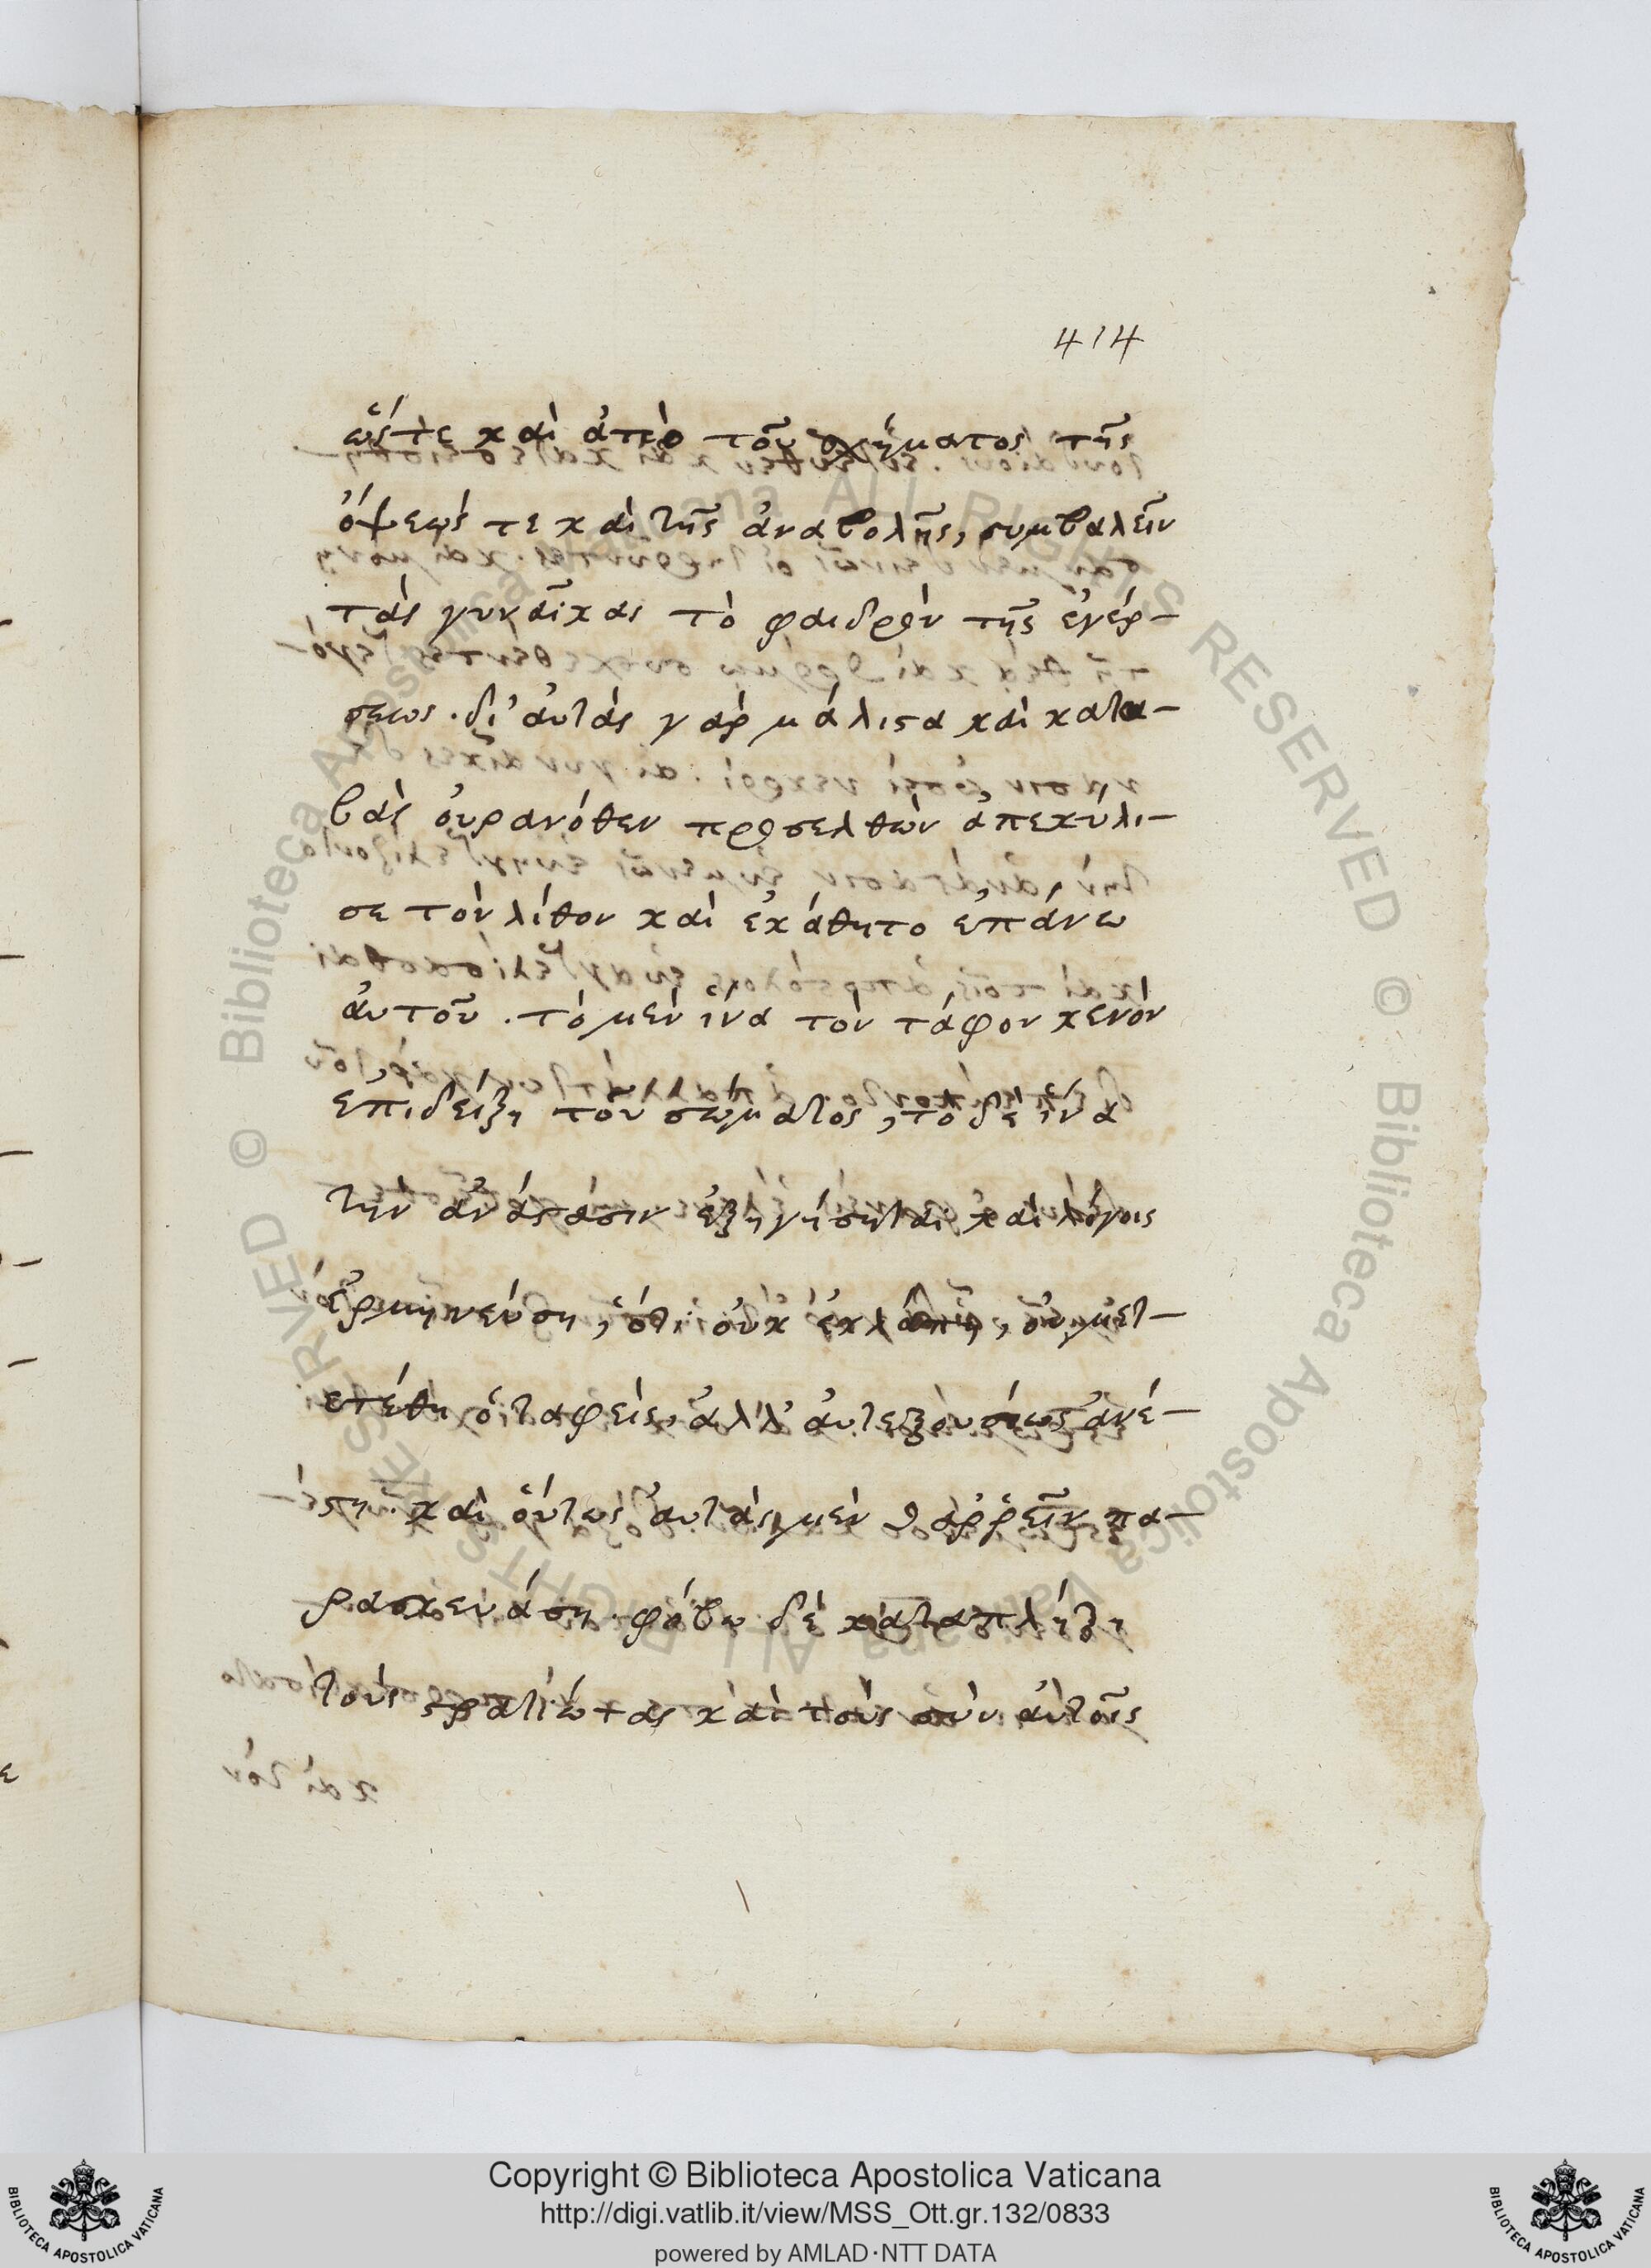 414
ὥστε καὶ ἀπὸ τοῦ σχήματος τῆς
ὄψεώς τε καὶ τῆς ἀναβολῆς, συμβαλεῖν
τὰς γυναῖκας τὸ φαιδρὸν τῆς ἐγέρ-
σεως. δι' αὐτὰς γὰρ μάλιστα καὶ κατα-
βὰς οὐρανόθεν προσελθὼν ἀπεκύλι-
σε τὸν λίθον καὶ ἐκάθητο ἐπάνω
αὐτοῦ. τὸ μὲν ἵνα τὸν τάφον κενὸν
ἐπιδείξη τοῦ σώματος, τὸ δὲ ἵνα
τὴν ἀνάστασιν ἐξηγήσηται καὶ λόγοις
ἑρμηνεύση, ὅτι οὐκ ἐκλάπη, οὐ μετ-
ετέθη ὁ ταφεὶς, ἀλλ' αὐτεξουσίως ἀνέ-
στη. καὶ οὕτως αὐτὰς μὲν θαῤῥεῖν πα-
ρασκευάση. φόβω δὲ καταπλήξη
τοὺς στρατιώτας καὶ τοὺς σὺν αὐτοῖς
Copyright © Biblioteca Apostolica Vaticana
http://digi.vatlib.it/view/MSS_Ott.gr.132/0833
powered by AMLAD·NTT DATA
BIBLIOTECA APOSTOLICA VATICANA
BIBLIOTECA APOSTOLICA VATICANA
© Biblioteca Apostolica Vaticana ALL RIGHTS RESERVED © Biblioteca Apostolica Vaticana ALL RIGHTS RESERVED